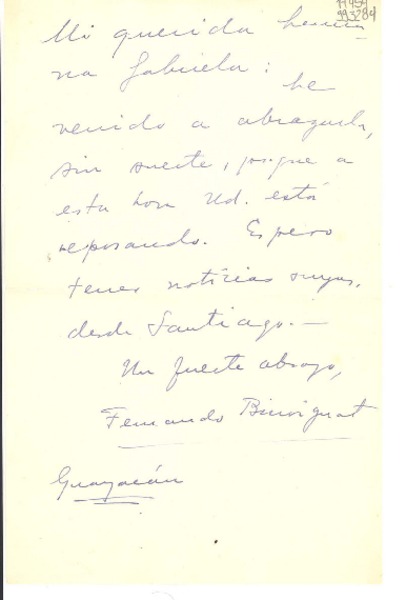 993284
Mi querida herma
na Gabriela: he
venido a abrazarla,
sin suerte, porque a
esta hora Ud. está
reposando. Espero
tener noticias suyas,
desde Santiago.—
Un fuerte abrazo,
Fernando Binvignat
Guayacán